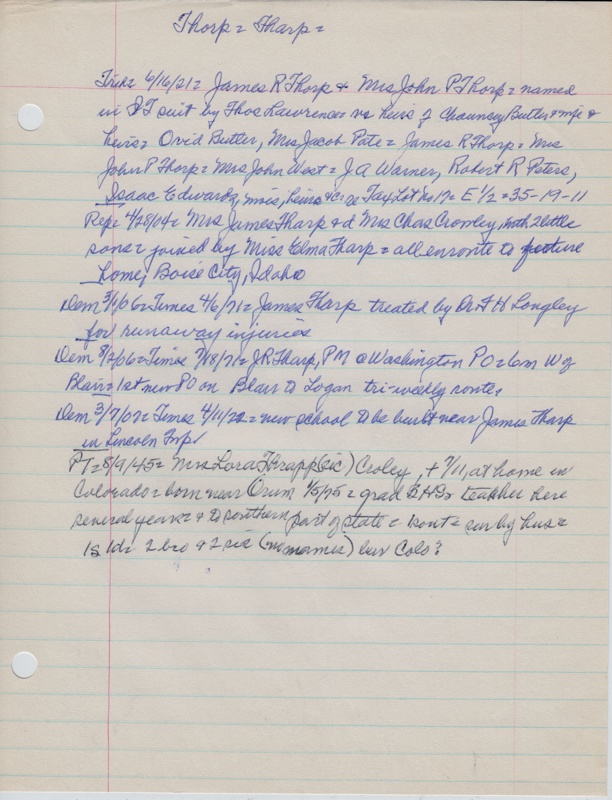 Thorp = Tharp =
Trib = 6/16/21 = James R Thorp & Mrs John P Thorp = named
in QT suit by Thos Lawrence = vs heirs of Chauncey Butler & wife &
heirs = Ovid Butler, Mrs Jacob Pate = James R Thorp = Mrs
John P Thorp = Mrs John West = J A Warner, Robert R Peters,
Isaac Edwards, heirs &c = re Tax Lot No 17 = E 1/2 = 35-19-11
Rep = 4/28/04 = Mrs James Tharp & d Mrs Chas Crowley, with 2 little
sons = joined by Miss Elma Tharp = all enroute to future
home, Boise City, Idaho
Dem 3/1/06 = Times 4/6/71 = James Tharp treated by Dr A H Longley
for runaway injuries
Dem 8/2/06 = Times 7/18/71 = J.R. Tharp, PM @ Washington PO = 6 m W of
Blair = 1st new PO on Blair to Logan tri-weekly route,
Dem 3/7/07 = Times 4/11/72 = new school to be built near James Tharp
in Lincoln Twp
PT = 8/9/45 = Mrs Lora Thrapp (sic) Croley, + 7/11, at home in
Colorado = born near Orum 1/5/75 = grad BHS = teacher here
several years = & to southern part of state = sur by hus =
1s 1d = 2 bro & 2 sis (no names) bur Colo?